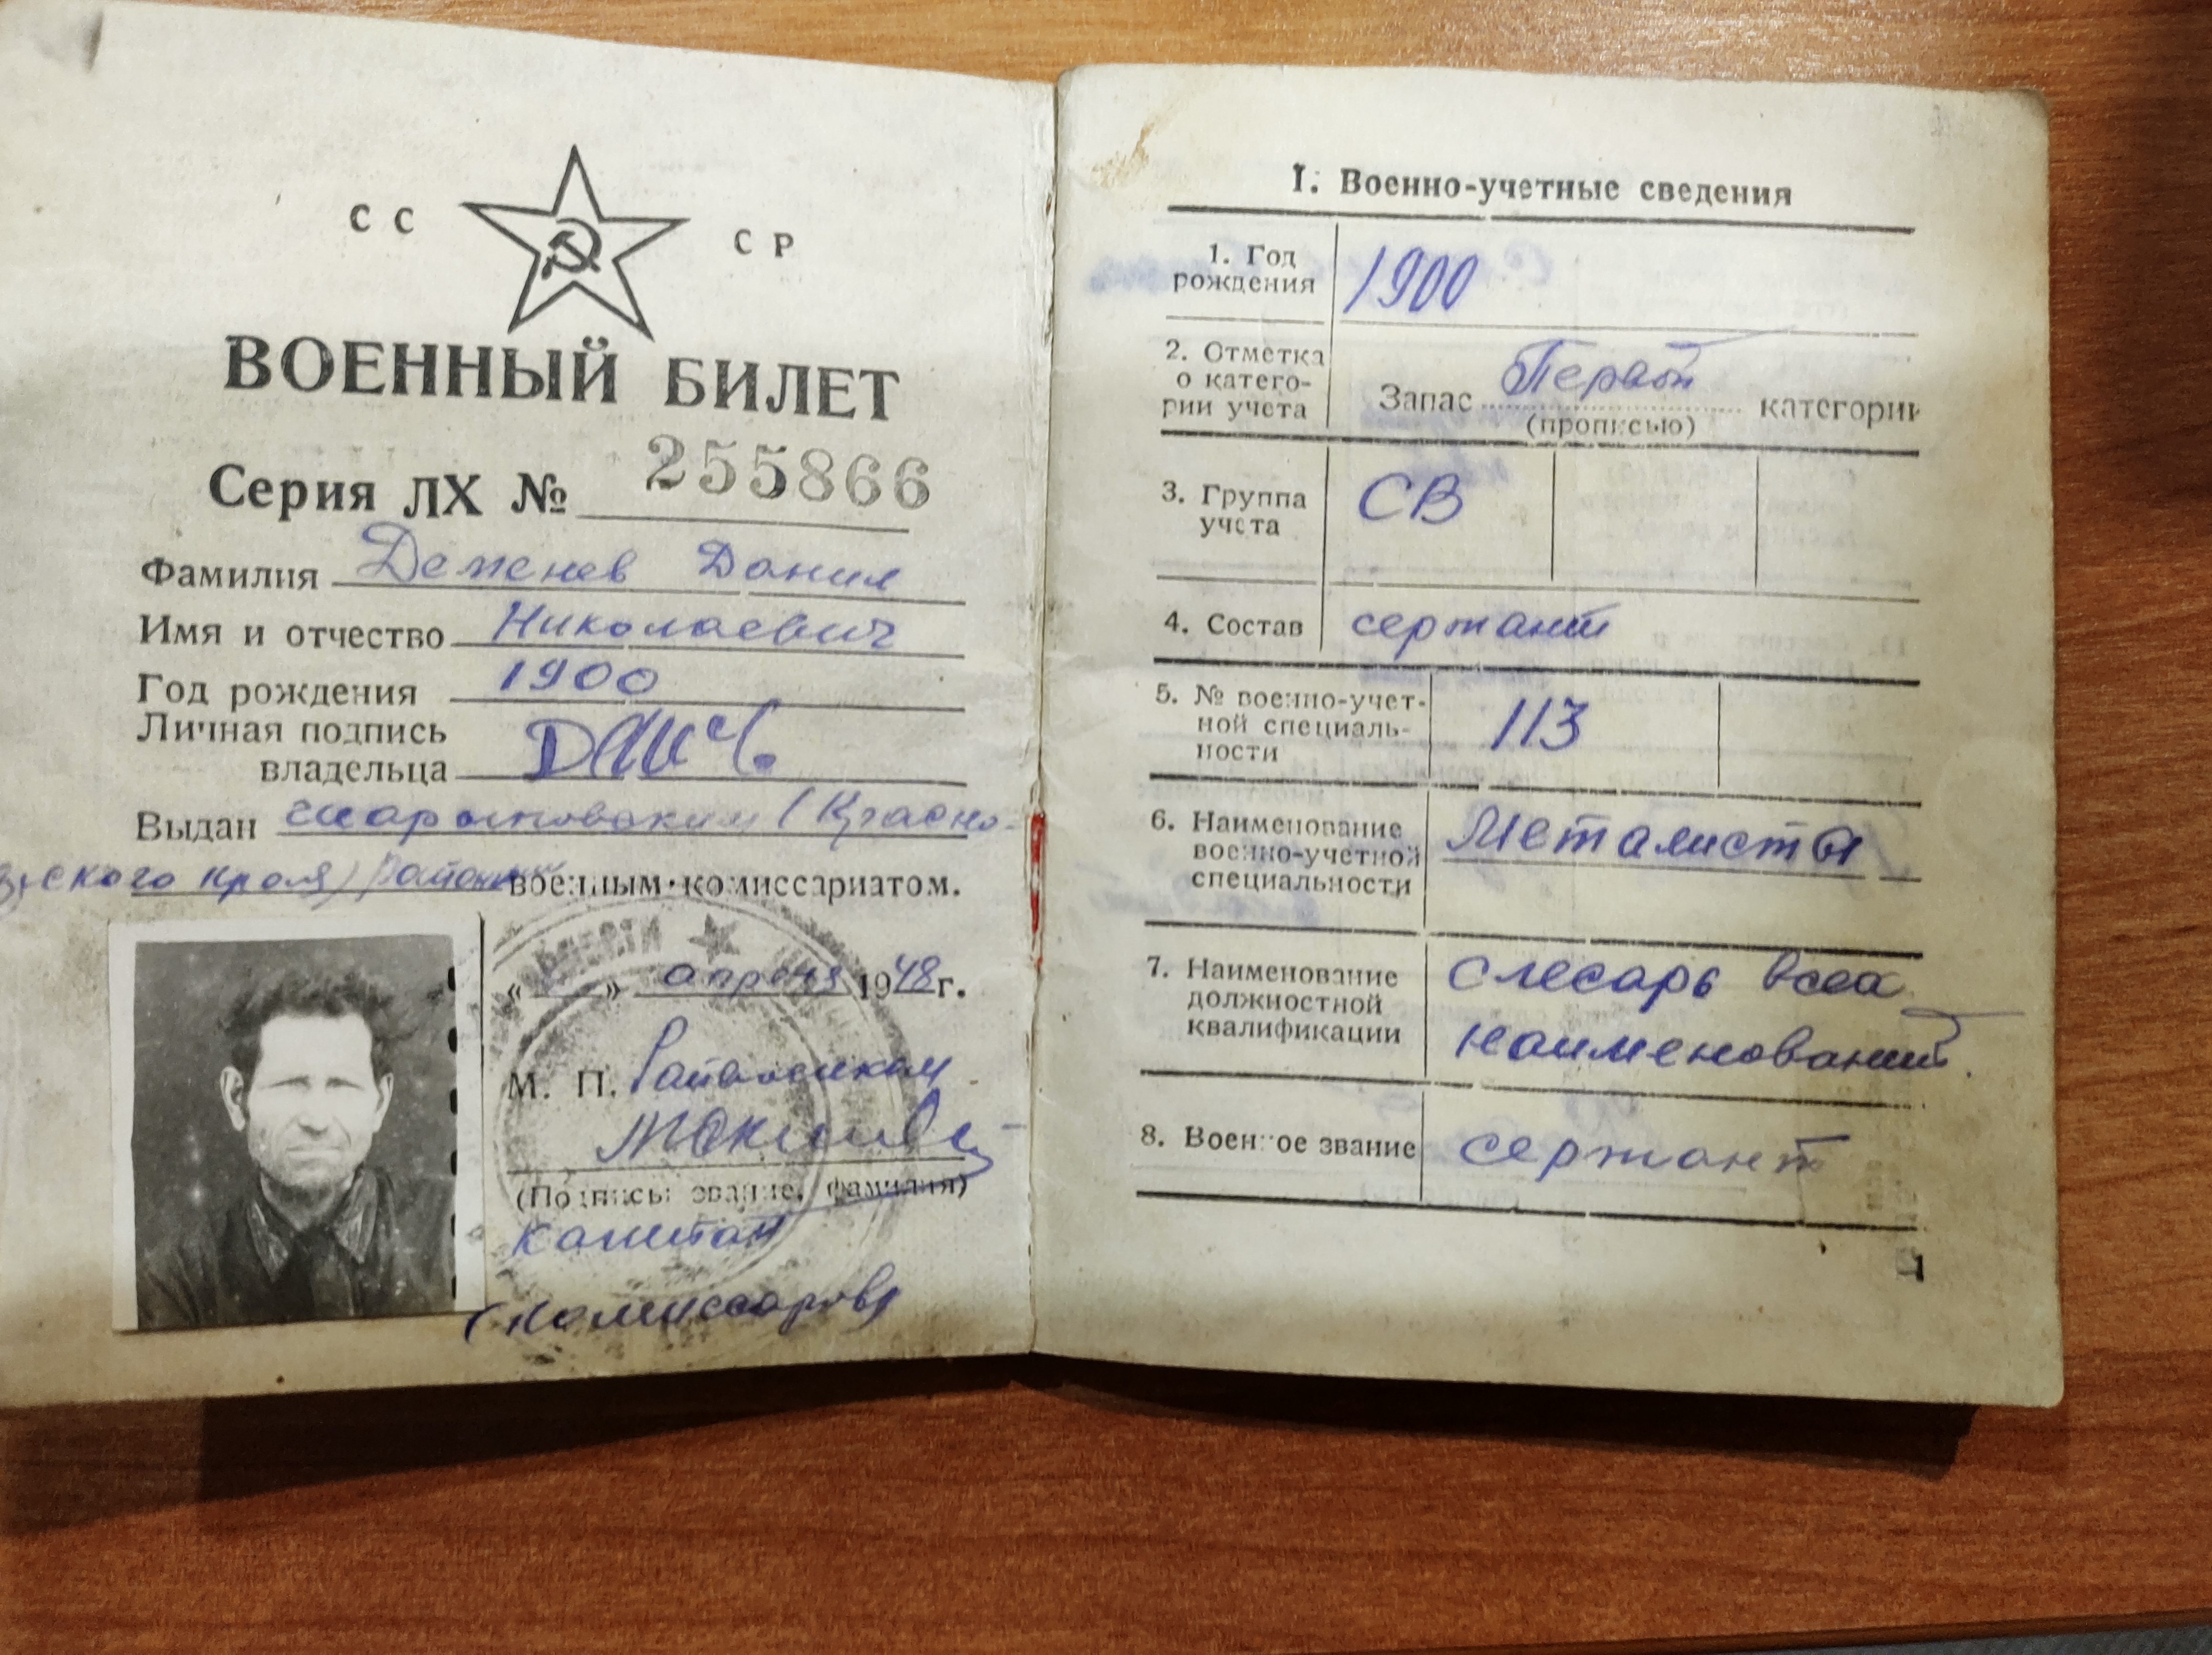 СС СР
ВОЕННЫЙ БИЛЕТ
Серия ЛХ № 255866
Фамилия Деменев Данил
Имя и отчество Николаевич
Год рождения 1900
Личная подпись
владельца
Выдан Шарыповским (Красно-
ского края) Районным военным комиссариатом.
« » апреля 1948 г.
М. П. Райвоенком
(Подпись, звание, фамилия)
капитан
(Комиссаров)
I. Военно-учетные сведения
1. Год
рождения 1900
2. Отметка
о катего-
рии учета
Запас Первой категории
(прописью)
3. Группа
учета СВ
4. Состав сержант
5. № военно-учет-
ной специаль-
ности 113
6. Наименование
военно-учетной
специальности Металисты
7. Наименование
должностной
квалификации
слесарь всех
наименований.
8. Военное звание сержант
1